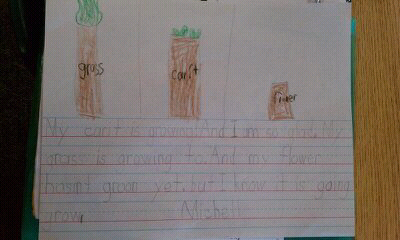 grass
carit
flower
My carit is growing. And I am so glad. My
grass is growing to. And my flower
hasnt groon yet. but I know it is going
grow. Mishell